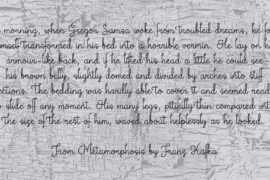 morning, when Gregor Samsa woke from troubled dreams, he fo
mself transformed in his bed into a horrible vermin. He lay on h
armour-like back, and if he lifted his head a little he could see
his brown belly, slightly domed and divided by arches into stiff
ections. The bedding was hardly able to cover it and seemed read
o slide off any moment. His many legs, pitifully thin compared wit
the size of the rest of him, waved about helplessly as he looked.
From Metamorphosis by Franz Kafka